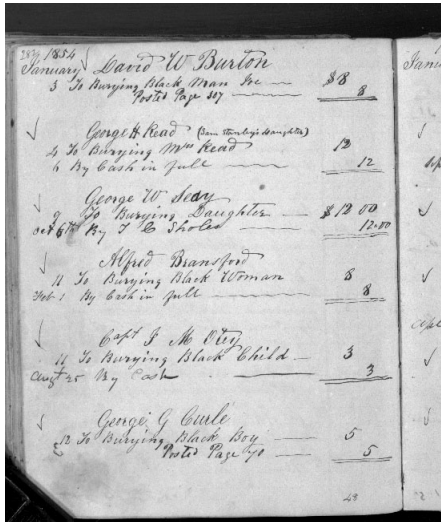 287 1854
January David W Burton
3 To Burying Black Man Joe $8
Posted Page 307 8
George H Read (Sam Stanley's Daughter)
4 To Burying Mrs Read 12
6 By Cash in full 12
George W
9 To Burying Daughter $12 00
Oct 6th By T C 12.00
Alfred Bransford
11 To Burying Black Woman 8
Feb 1 By Cash in full 8
Capt J M Otey
11 To Burying Black Child 3
Augt 25 By Cash 3
George G Curle
12 To Burying Black Boy 5
Posted Page 70 5